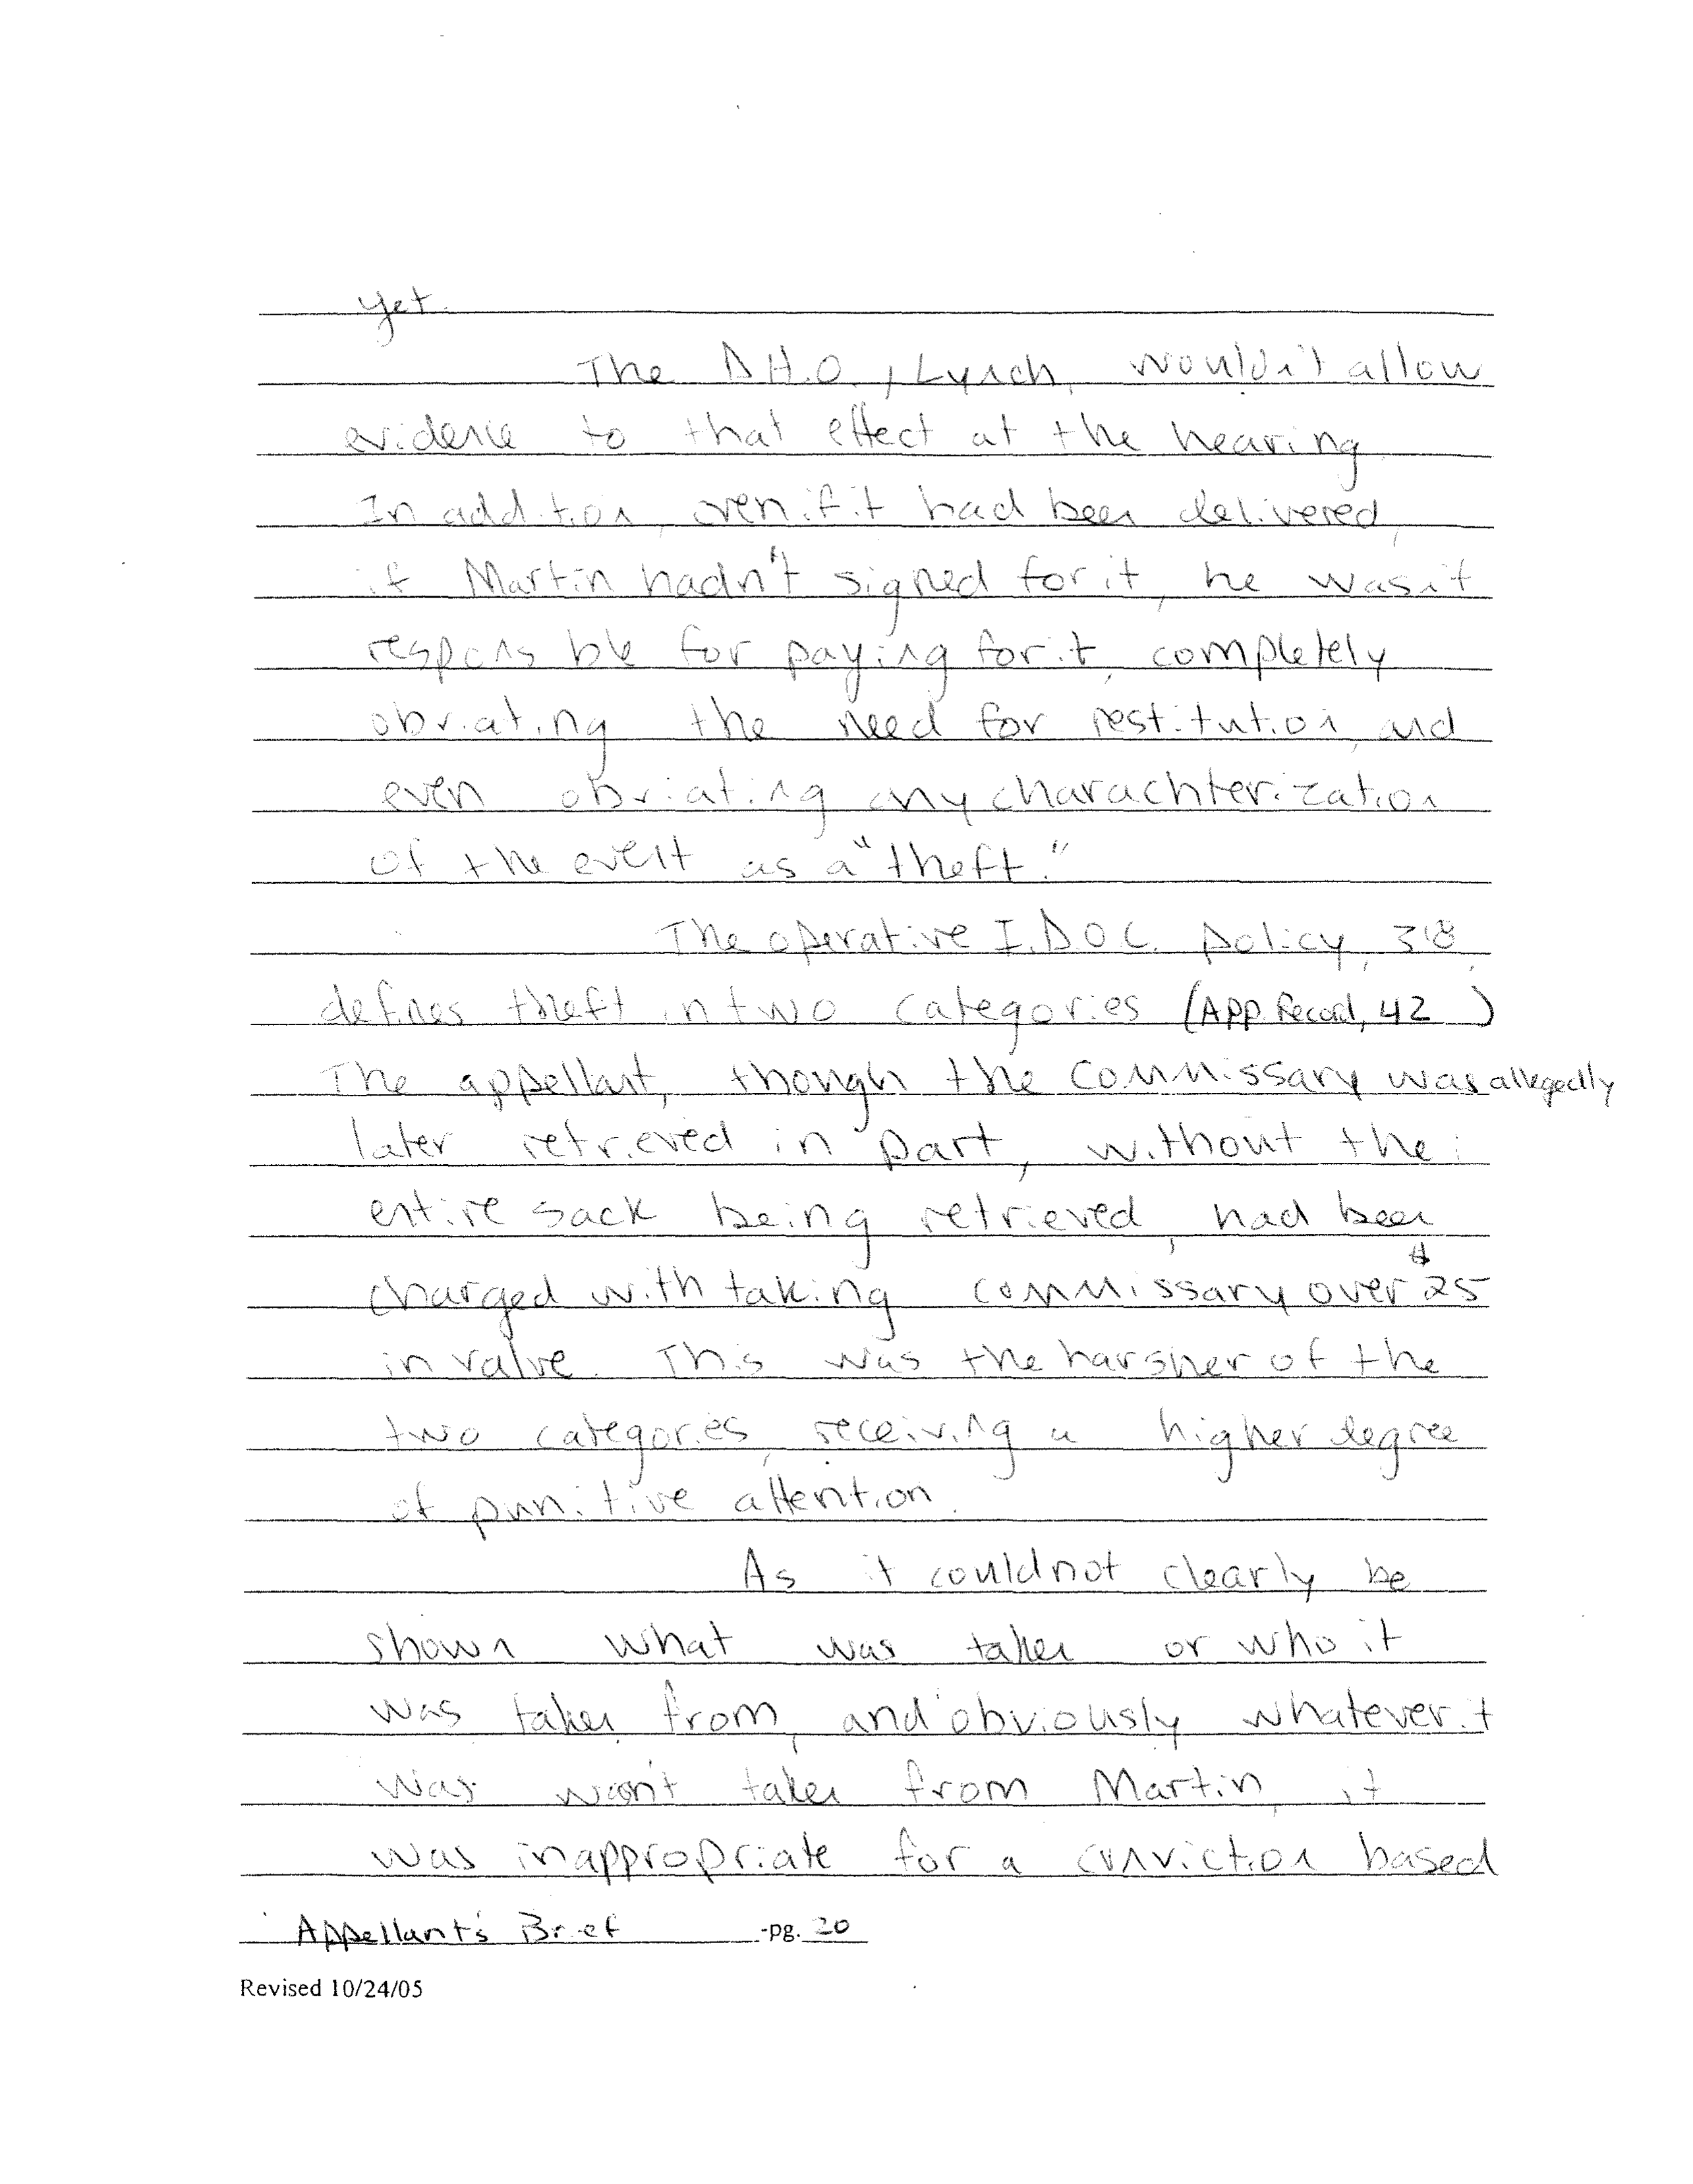 yet.
The D.H.O., Lynch, wouldn't allow
evidence to that effect at the hearing.
In addition, even if it had been delivered,
if Martin hadn't signed for it, he wasn't
responsible for paying for it, completely
obviating the need for restitution, and
even obviating any charachterization
of the event as a "theft."
The operative I.D.O.C. policy, 318,
defines theft in two categories (App. Record, 42 )
The appellant, though the commissary was allegedly
later retrieved in part, without the
entire sack being retrieved, had been
charged with taking commissary over $25
in value. This was the harsher of the
two categories, receiving a higher degree
of punitive attention.
As it could not clearly be
shown what was taken or who it
was taken from, and obviously whatever it
was wasn't taken from Martin, it
was inappropriate for a conviction based
Appellant's Brief -pg. 20
Revised 10/24/05